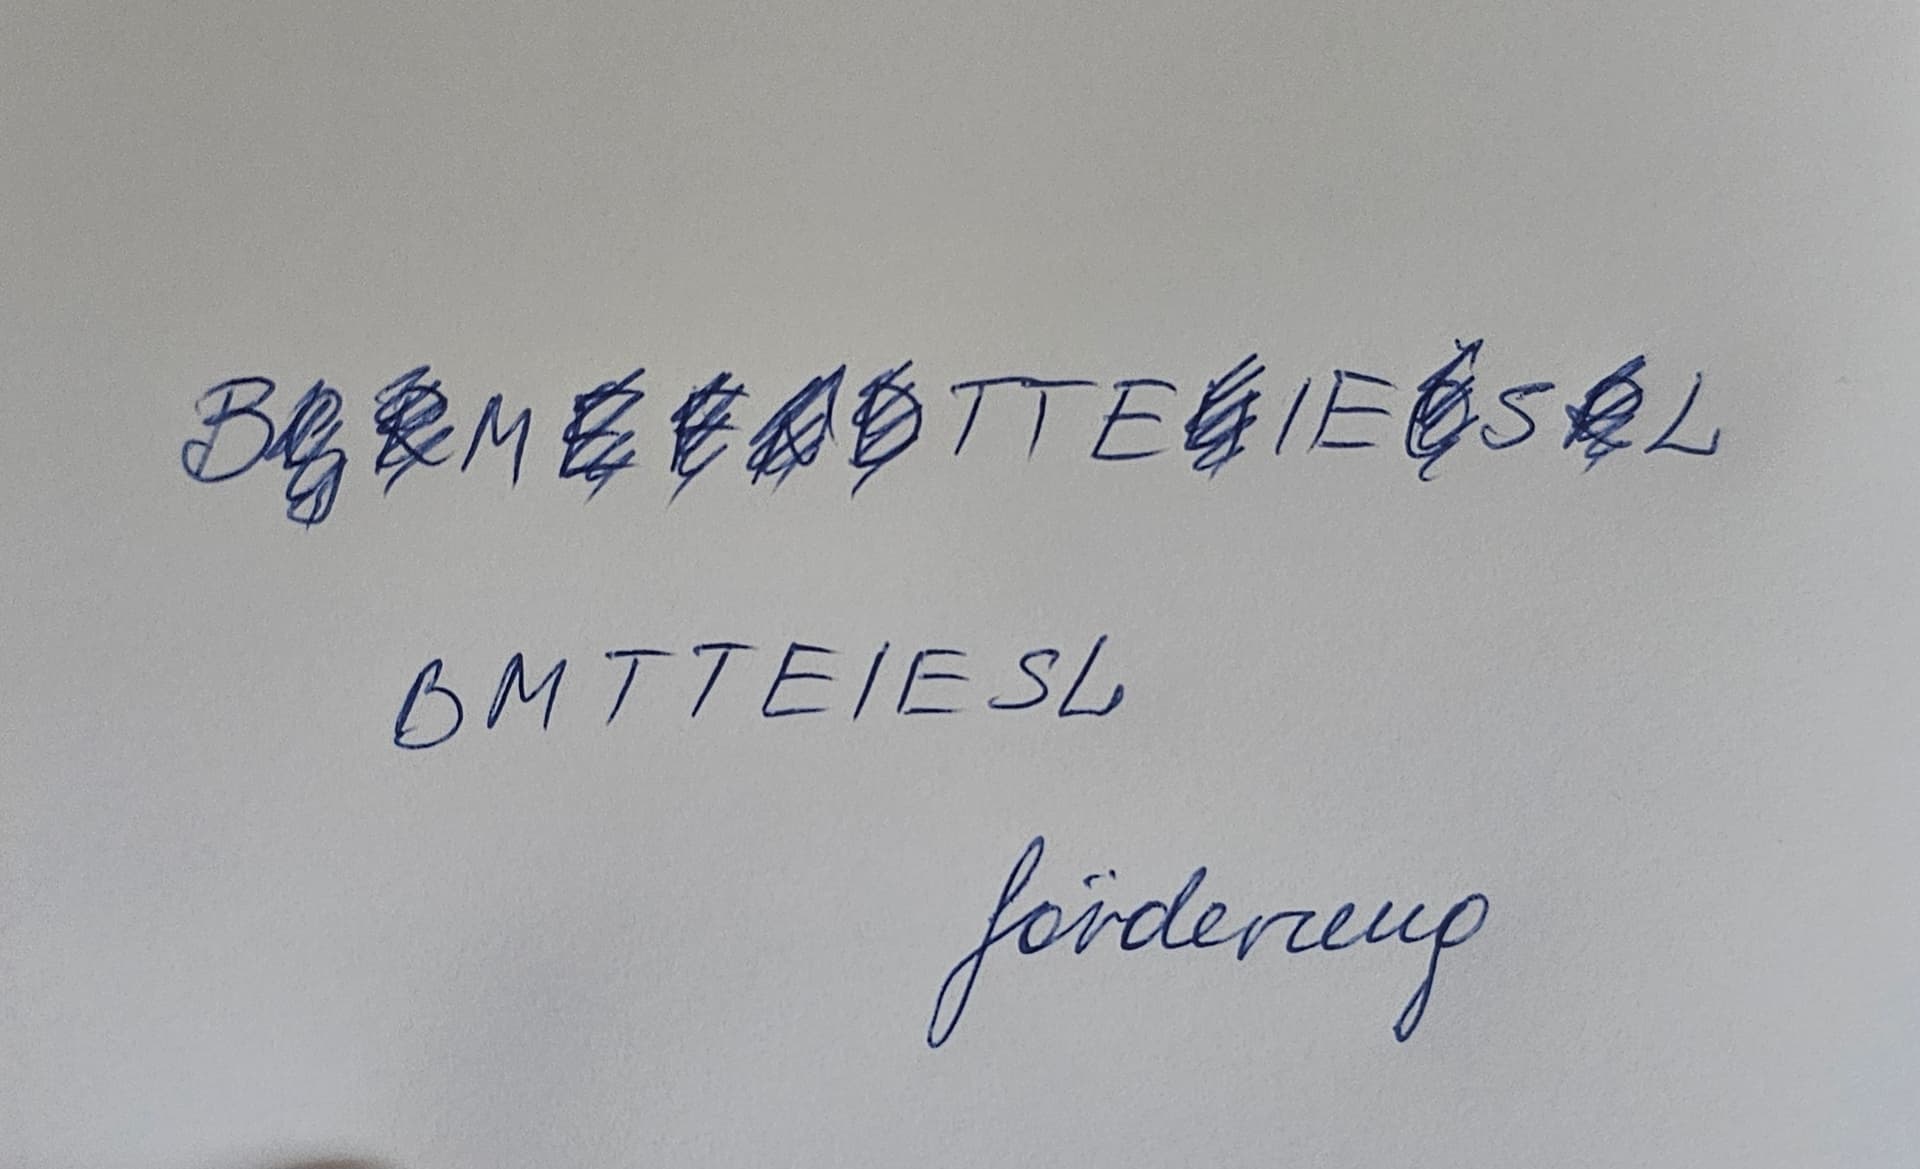 BMTTEIESL
BMTTEIESL
förderung